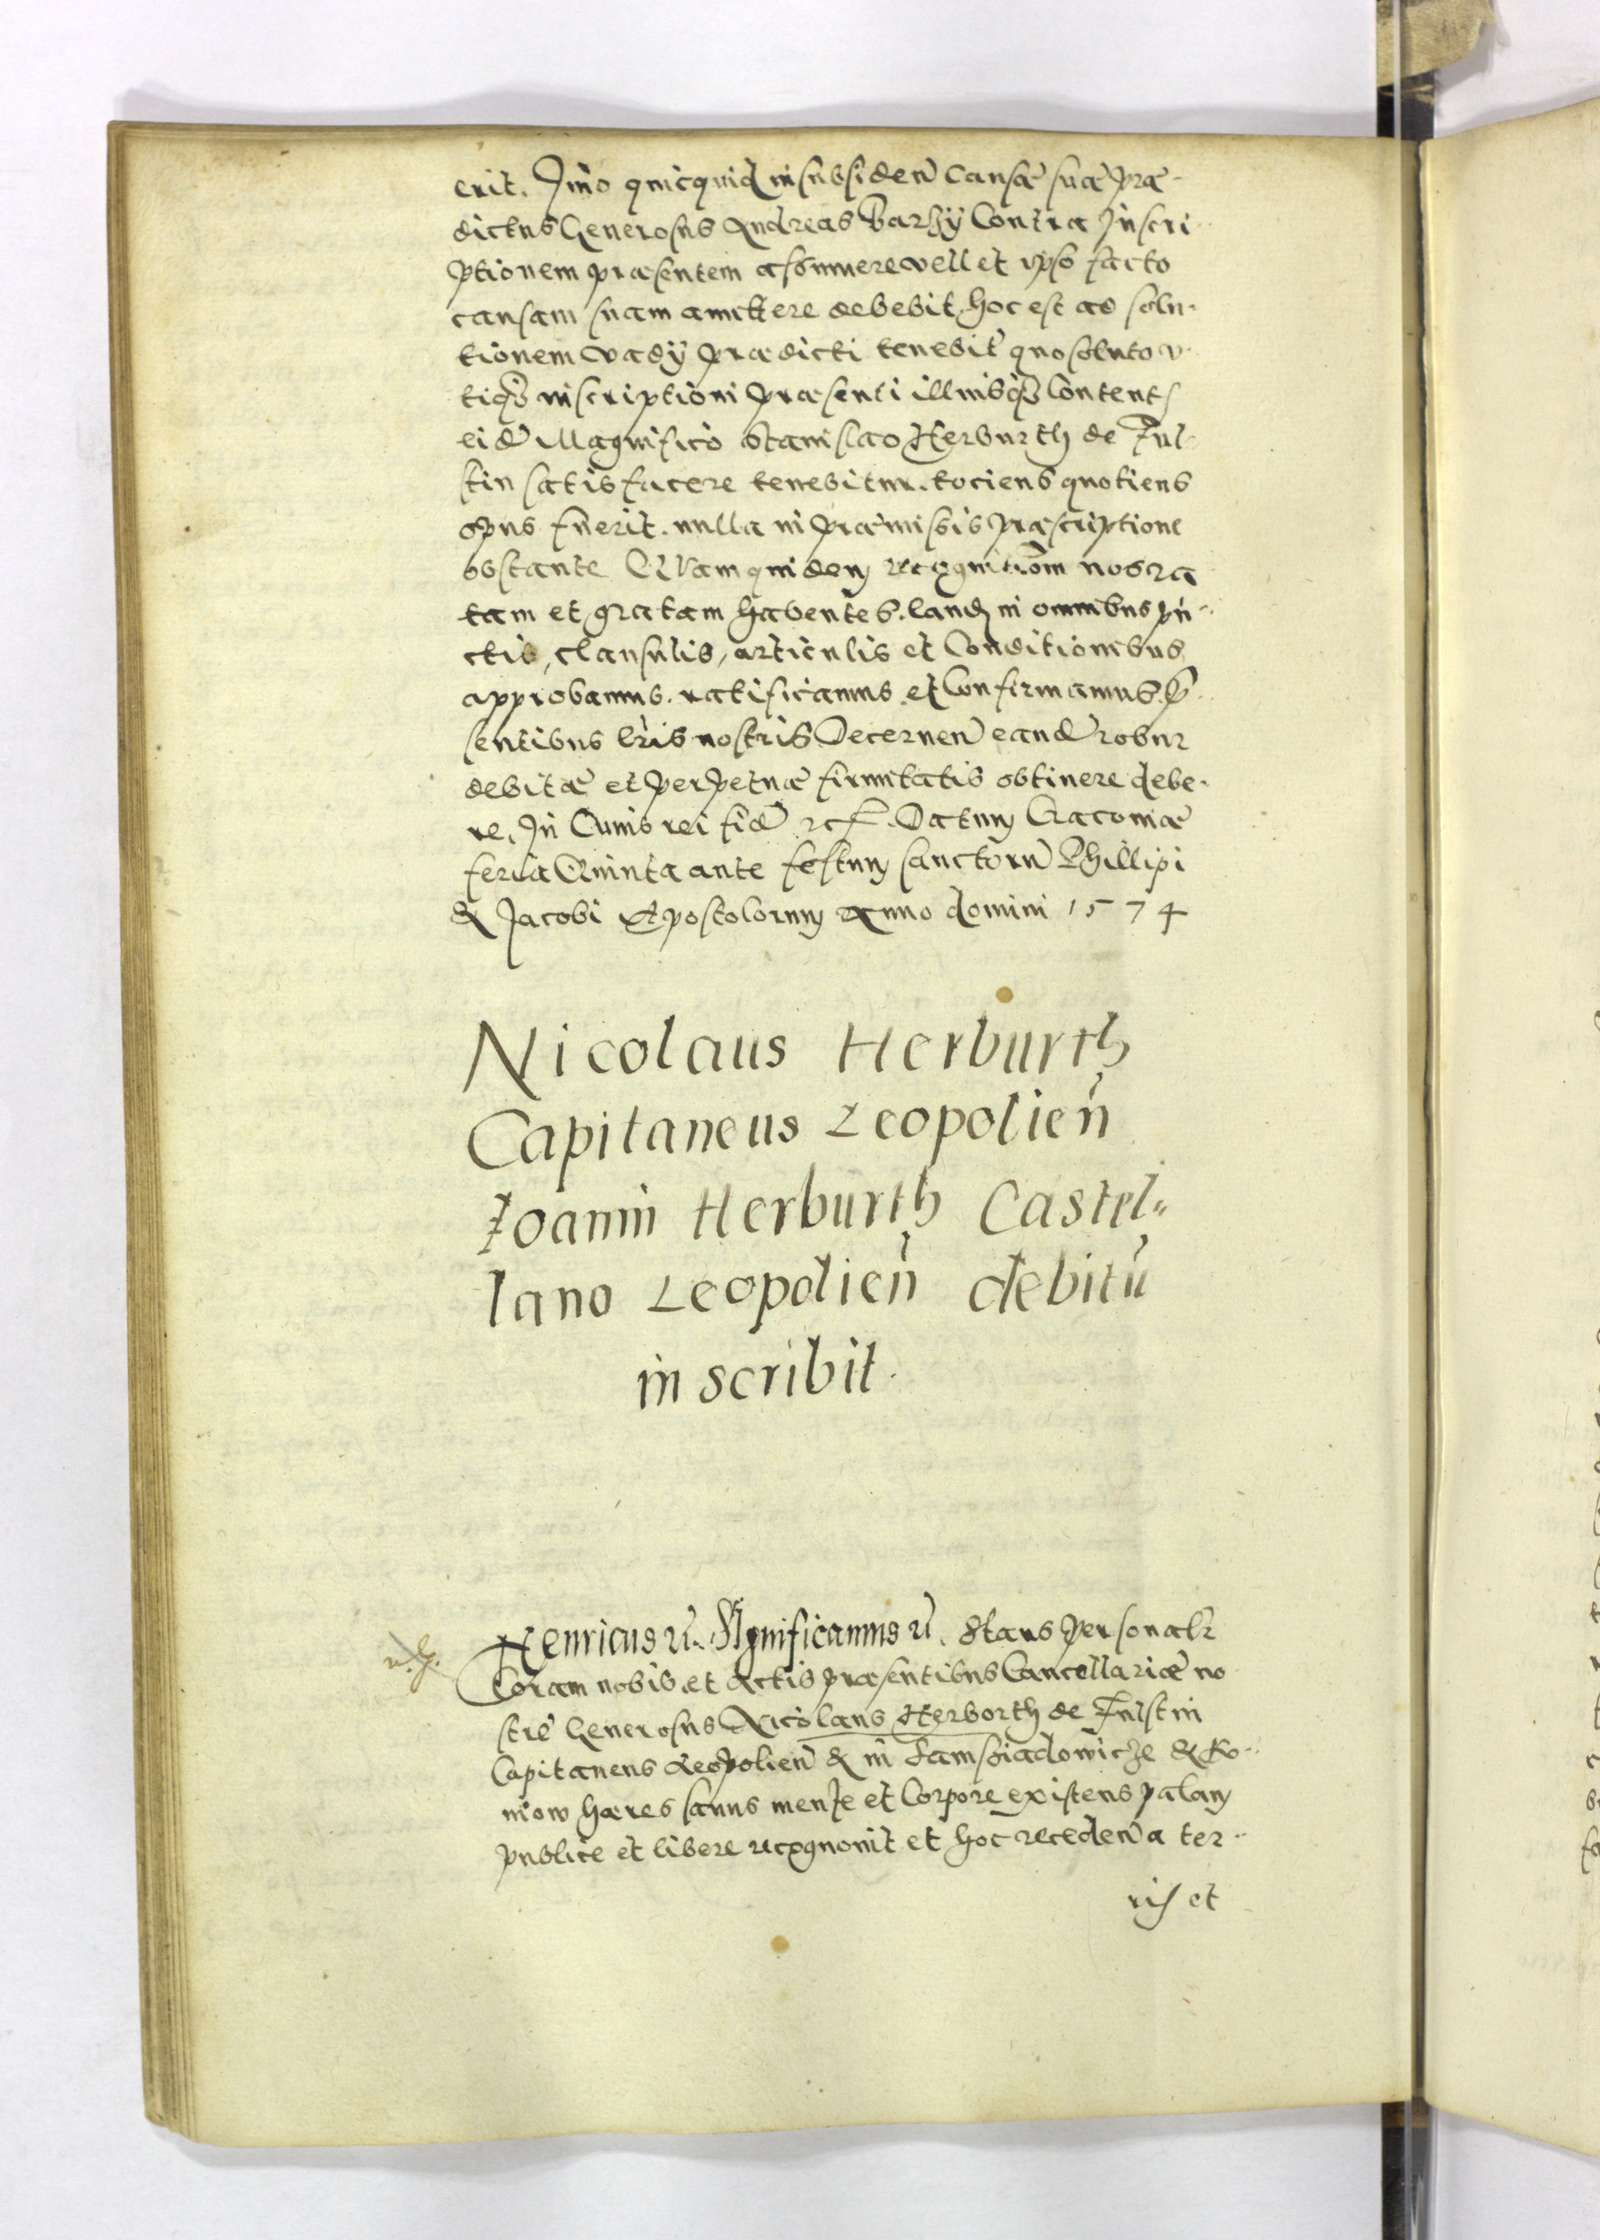 erit. Imo quicquid in subsiden̄ causæ suæ præ-
dictus Generosus Andreas Barzy Contra Inscri-
ptionem præsentem assumere vellet ipso facto
causam suam amittere debebit, hoc est ad solu-
tionem vadÿ prædicti tenebit̄ quo soluto v-
tiq3 inscriptioni præsenti illiusq3 Content,
eid̄ Magnifico Stanislao Herburth de Ful-
stin satisfacere tenebitur. tociens quotiens
opus fuerit. nulla in præmissis præscriptione
obstante Quam quidem recognitiom̄ nos ra
tam et gratam habentes. eand in omnibus pu-
ctis, clausulis, articulis et Conditionibus
approbamus. ratificamus. et Confirmamus. p̄-
sentibus lr̄is nostris Decernen̄ eand̄ robur
debitæ et perpetuæ firmitatis obtinere debe-
re. In Cuius rei fid̄ etc. Datum Cracoviæ
feria Quinta ante festum sanctoru Phillipi
& Jacobi Apostolorum Anno domini 1574
Nicolaus Herburth
Capitaneus Leopolien̄
Ioanni Herburth Castel-
lano Leopolien̄ debitū
inscribit.
Henricus etc. Significamus etc. Stans personalr
Coram nobis et Actis præsentibus Cancellariæ no
stre Generosus Nicolaus Herborth de Fulstin
Capitaneus Leopolien̄ & in &
hæres sanus mente et Corpore existens palam
publice et libere recognovit et hoc receden̄ a ter-
ris et